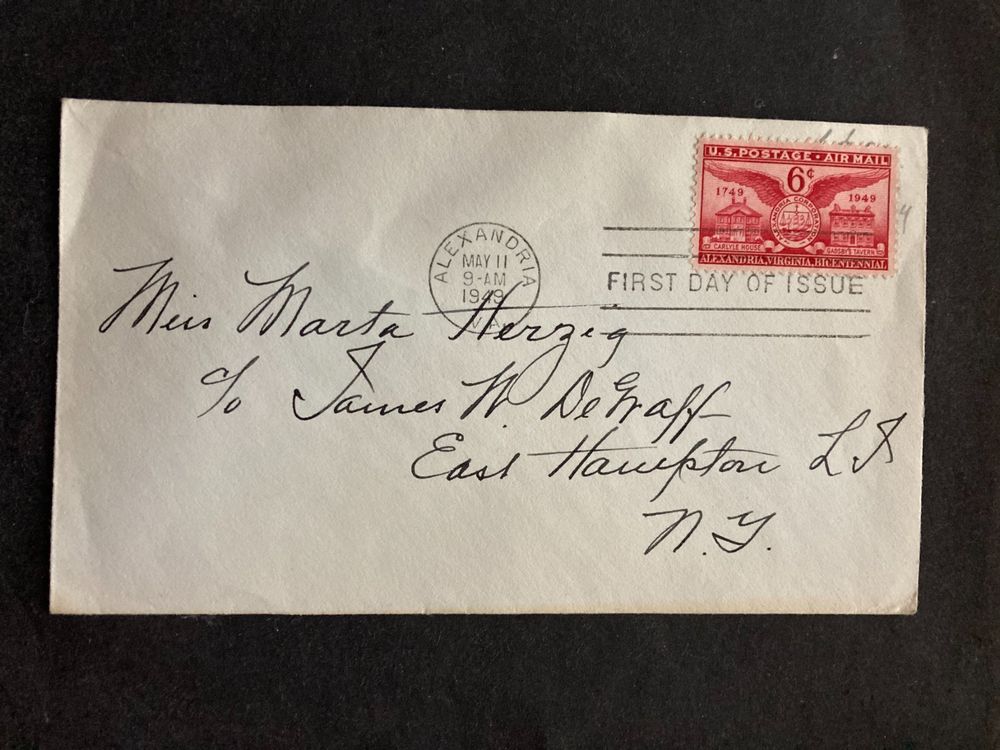 U.S. POSTAGE • AIR MAIL
6¢
1749
1949
ALEXANDRIA CORPORATION
CARLYLE HOUSE
GADSBY'S TAVERN
ALEXANDRIA, VIRGINIA, BICENTENNIAL
ALEXANDRIA
MAY 11
9-AM
1949
VA.
FIRST DAY OF ISSUE
Miss Marta Herzig
c/o James W. DeGraff
East Hampton L I
N.Y.